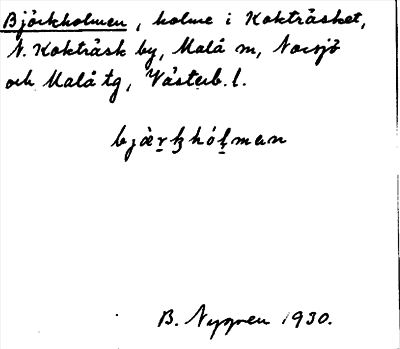 Björkholmen, holme i Kokträsket,
N. Kokträsk by, Malå sn, Norsjö
och Malå tg, Västerb. l.
B. Nygren 1930.